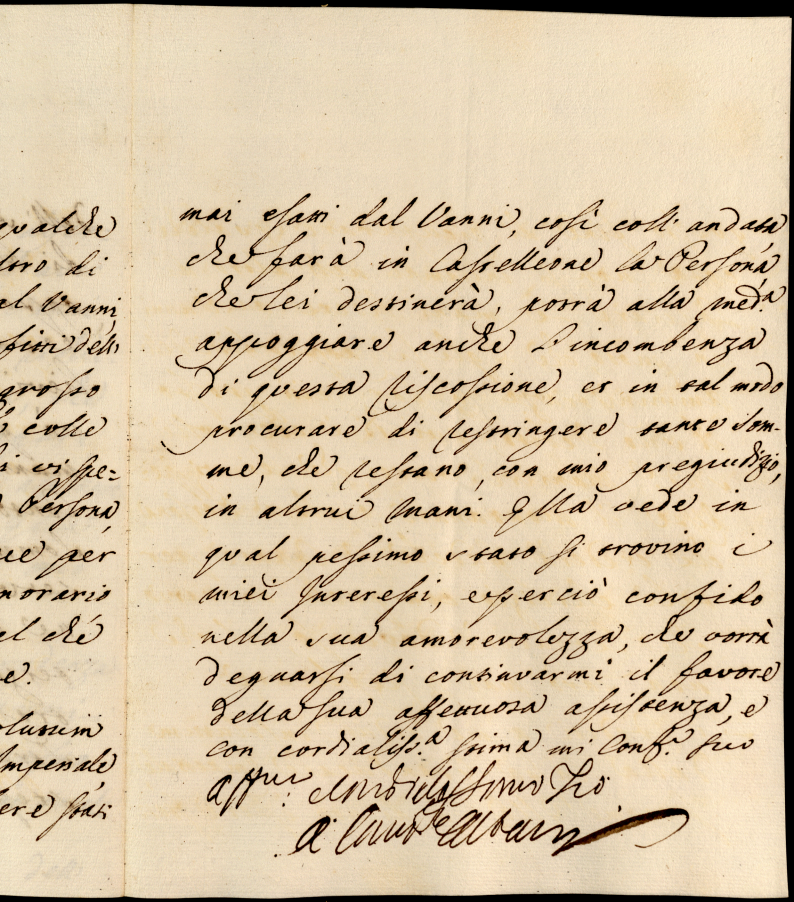 qualche
loro di
al Vanni,
fitti dell
grosso
colle
i vi spe=
Persona,
ue per
norario
el ché
e.
Imperiale
ere stati
mai esatti dal Vanni, così coll'andata
che farà in Castelleone la Persona
che lei destinerà, potrà alla med.ª
appoggiare anche l'incombenza
di questa riscossione, et in tal modo
procurare di restringere tante som-
me, che restano, con mio pregiudizio,
in altrui mani. Ella vede in
qual pessimo stato si trovino i
miei Interessi, e perciò confido
nella sua amorevolezza, che vorrà
degnarsi di continuarmi il favore
della sua affettuosa assistenza, e
con cordialiss.ª stima mi Conf.º suo
aff.mo Zio
A Card.le Albani